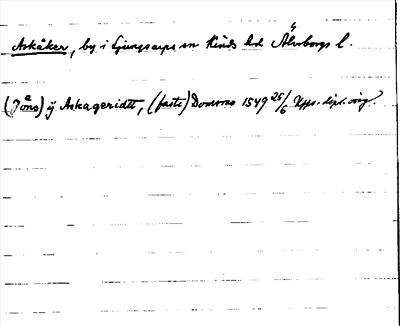 Askåker, by i Ljungsarps sn Kinds hd Älvborgs l.
(Jöns) ÿ Askageridtt, (faste) Domme 1549 25/6 Upps. dipl. orig.